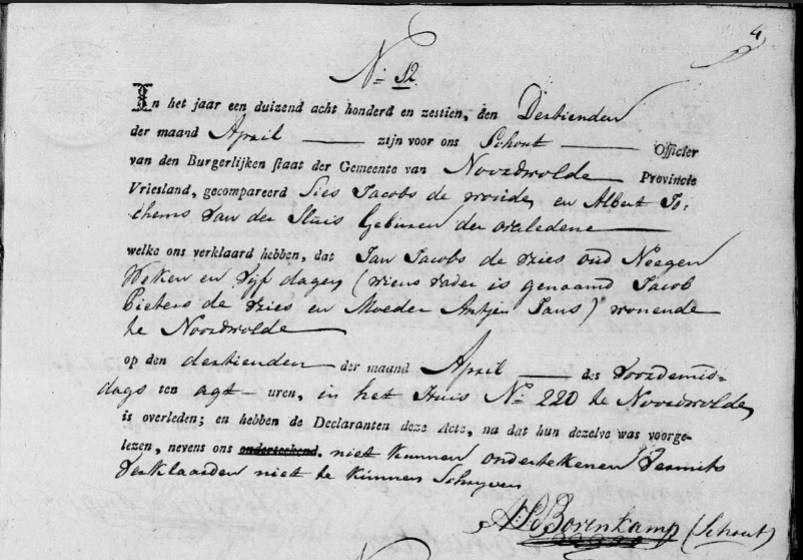 4
N: 12
In het jaar een duizend acht honderd en zestien, den Dertienden
der maand April zijn voor ons Schout Officier
van den Burgerlijken staat der Gemeente van Noordwolde Provincie
Vriesland, gecompareerd Sies Jacobs de en Albert Jo-
chems van der Sluis Geburen der overledene
welke ons verklaard hebben, dat Jan Jacobs de Vries oud Neegen
Weken en Vijf dagen (wiens vader is genaamd Jacob
Pieters de Vries en Moeder Antje Jans) wonende
te Noordwolde
op den dertienden der maand April des Voordemid-
dags ten agt uren, in het Huis N: 220 te Noordwolde,
is overleden; en hebben de Declaranten deze Acte, na dat hun dezelve was voorge-
lezen, nevens ons onderteekend, niet kunnen ondertekenen Vermits
Verklaarden niet te kunnen Schryven
Borenkamp (Schout)